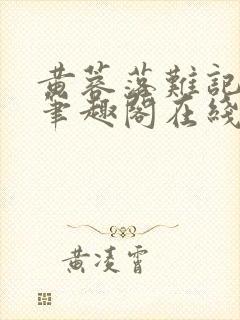 黄蓉落難記
筆趣閣在綫
黄凌霄